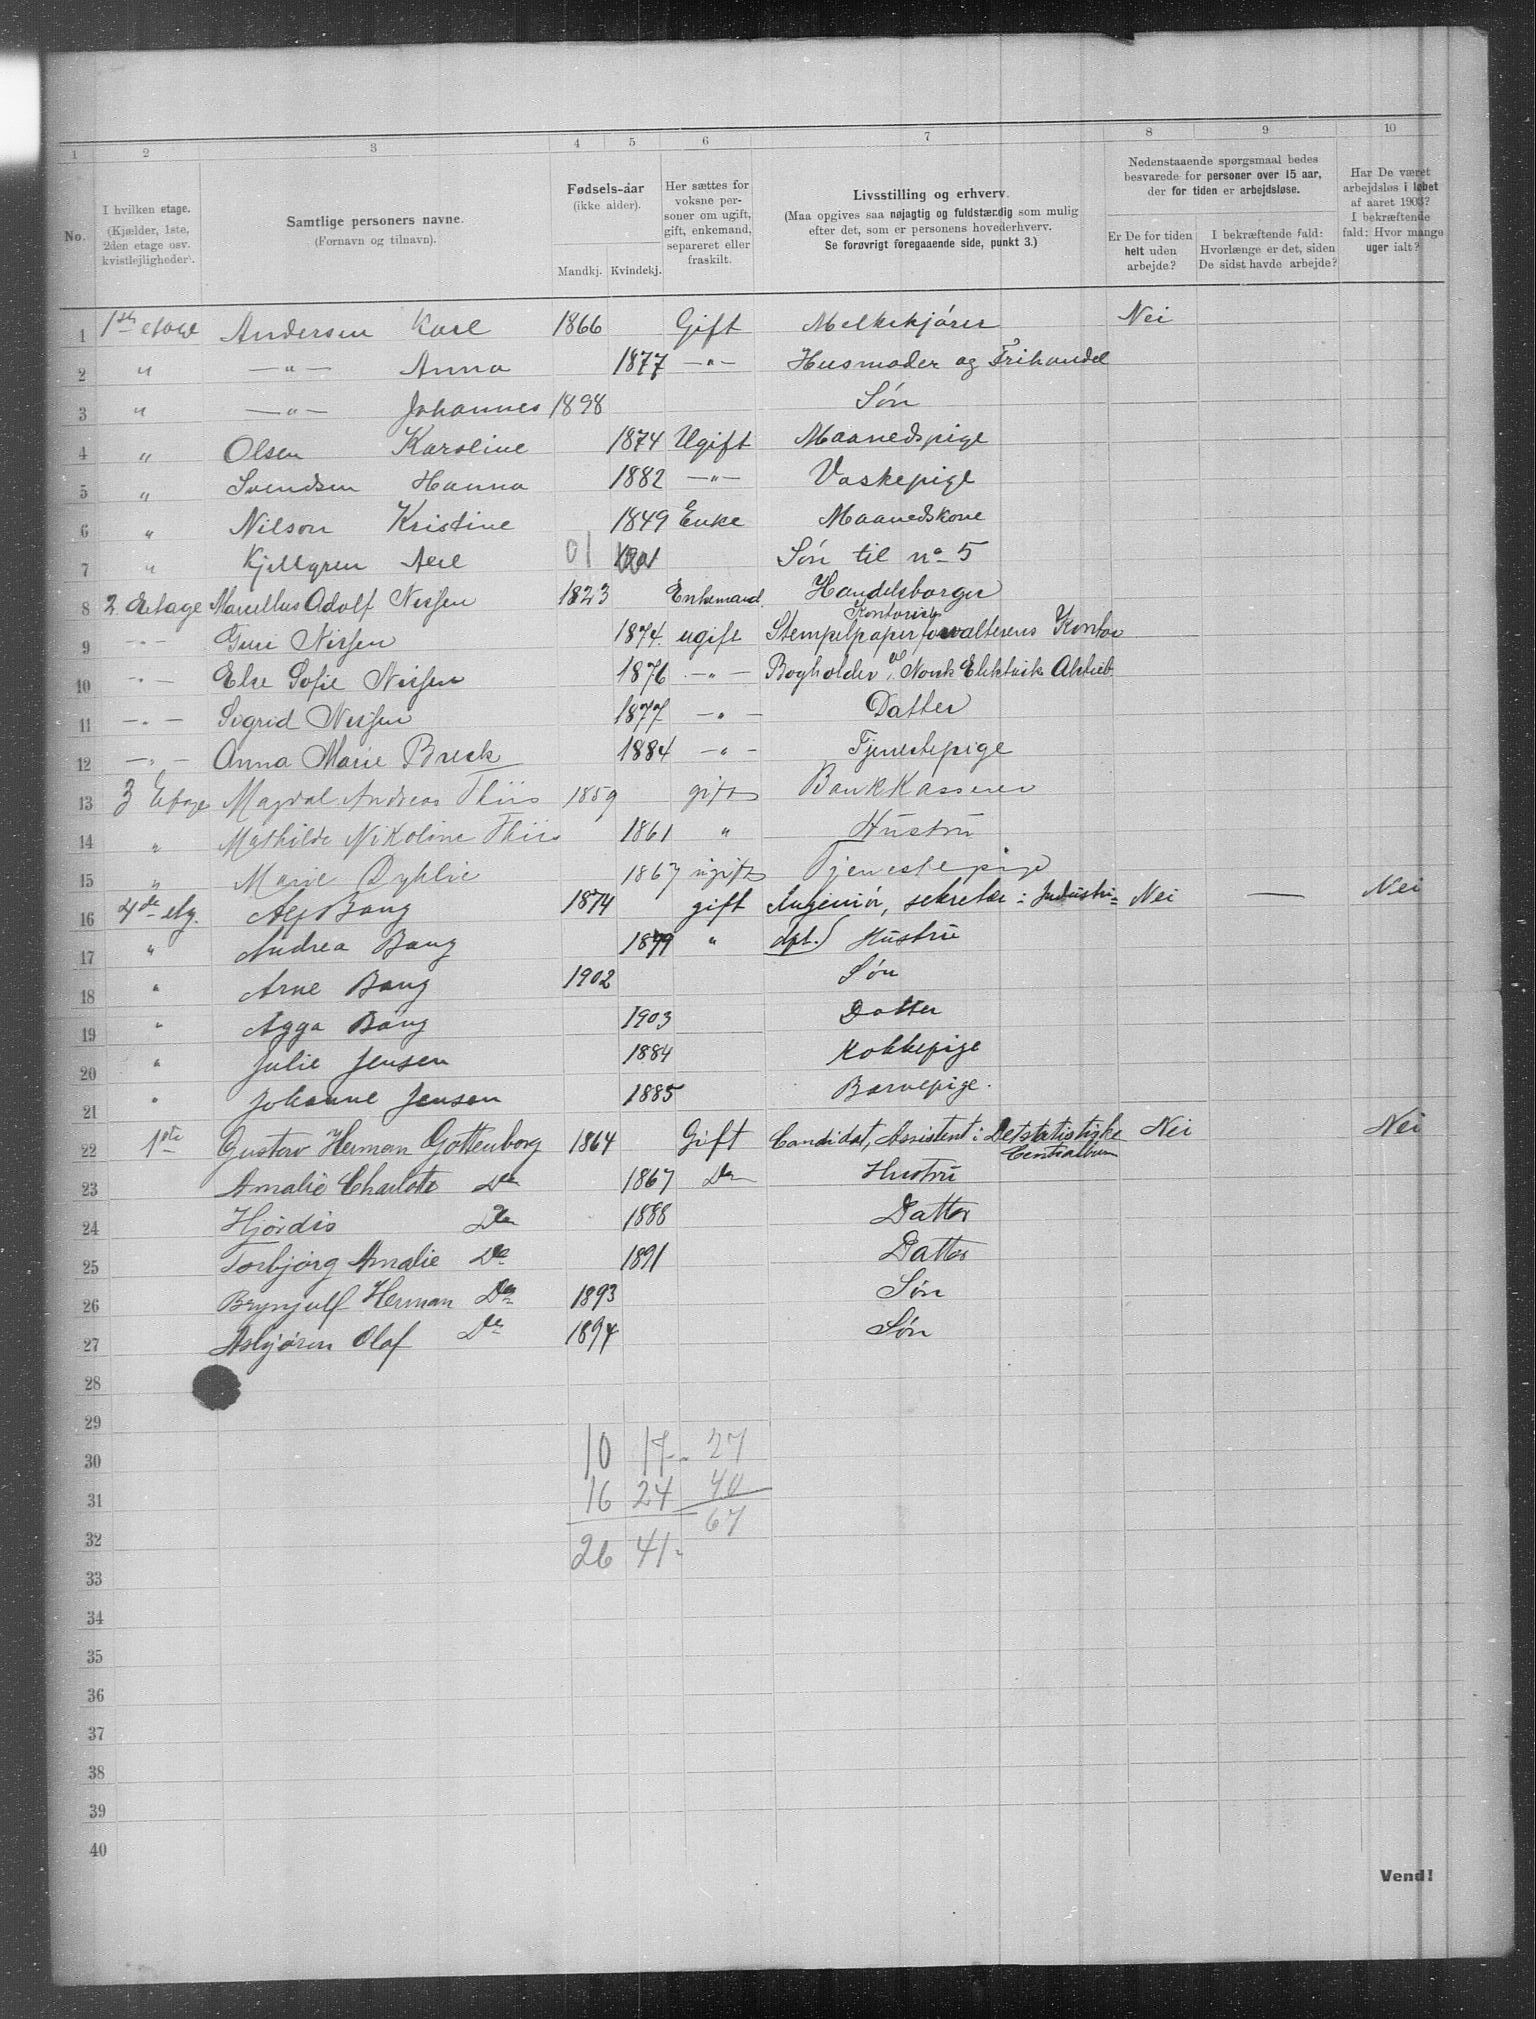 1 2 3 4 5 6 7 8 9 10
No.
I hvilken etage.
(Kjælder, 1ste,
2den etage osv.
kvistlejligheder).
Samtlige personers navne.
(Fornavn og tilnavn).
Fødsels-aar
(ikke alder).
Mandkj. Kvindekj.
Her sættes for
voksne per-
soner om ugift,
gift, enkemand,
separeret eller
fraskilt.
Livsstilling og erhverv.
(Maa opgives saa nøjagtig og fuldstærdig som mulig
efter det, som er personens hovederhverv.
Se forøvrigt foregaaende side, punkt 3.)
Nedenstaaende spørgsmaal bedes
besvarede for personer over 15 aar,
der for tiden er arbejdsløse.
Er De for tiden
helt uden
arbejde?
I bekræftende fald:
Hvorlænge er det, siden
De sidst havde arbejde?
Har De været
arbejdsløs i løbet
af aaret 1903?
I bekræftende
fald: Hvor mange
uger ialt?
1 1ste etage Andersen Karl 1866 Gift Melkekjører Nei
2 " —"— Anna 1877 —"— Husmoder og Frihandel
3 " —"— Johannes 1898 Søn
4 " Olsen Karoline 1874 Ugift Maanedspige
5 " Svendsen Hanna 1882 —"— Vaskepige
6 " Nilson Kristine 1849 Enke Maanedskone
7 " Kjellgren 01 Søn til no 5
8 2 Etage Marcellus Adolf Nissen 1823 Enkemand. Handelsborger
9 —"— Nissen 1874. ugift Stempelpapirforvalterens Kontor
Kontorist
10 —"— Else Sofie Nissen 1876 —"— Bogholder v. Norsk Elektrisk Aktieb.
11 —"— Sigrid Nissen 1877 —"— Datter
12 —"— Anna Marie Breek 1884 —"— Tjenestepige
13 3 Etage Magdal Andreas Thiis 1859 gift Bankkasserer
14 " Mathilde Nikoline Thiis 1861 " Hustru
15 " Marie Dyhlie 1867 ugift Tjenestepige
16 4de etg. Alf Bang 1874 gift Ingeniør, sekretær i Industri= Nei — Nei
17 " Andrea Bang 1879 " dpt.) Hustru
18 " Arne Bang 1902 Søn
19 " Agga Bang 1903 Datter
20 " Julie Jensen 1884 Kokkepige
21 " Johanne Jensen 1885 Barnepige.
22 1ste Gustav Herman Gottenborg 1864 Gift Candidat, Assistent i Det statistiske Nei Nei
Centralbureau
23 Amalie Charlotte Do 1867 Do Hustru
24 Hjørdis Do 1888 Datter
25 Torbjørg Amalie Do 1891 Datter
26 Brynjulf Herman Do 1893 Søn
27 Asbjørn Olaf Do 1894 Søn
28
29
30 10 17- 27
31 16 24 40
32 26 41- 67
33
34
35
36
37
38
39
40
Vend!